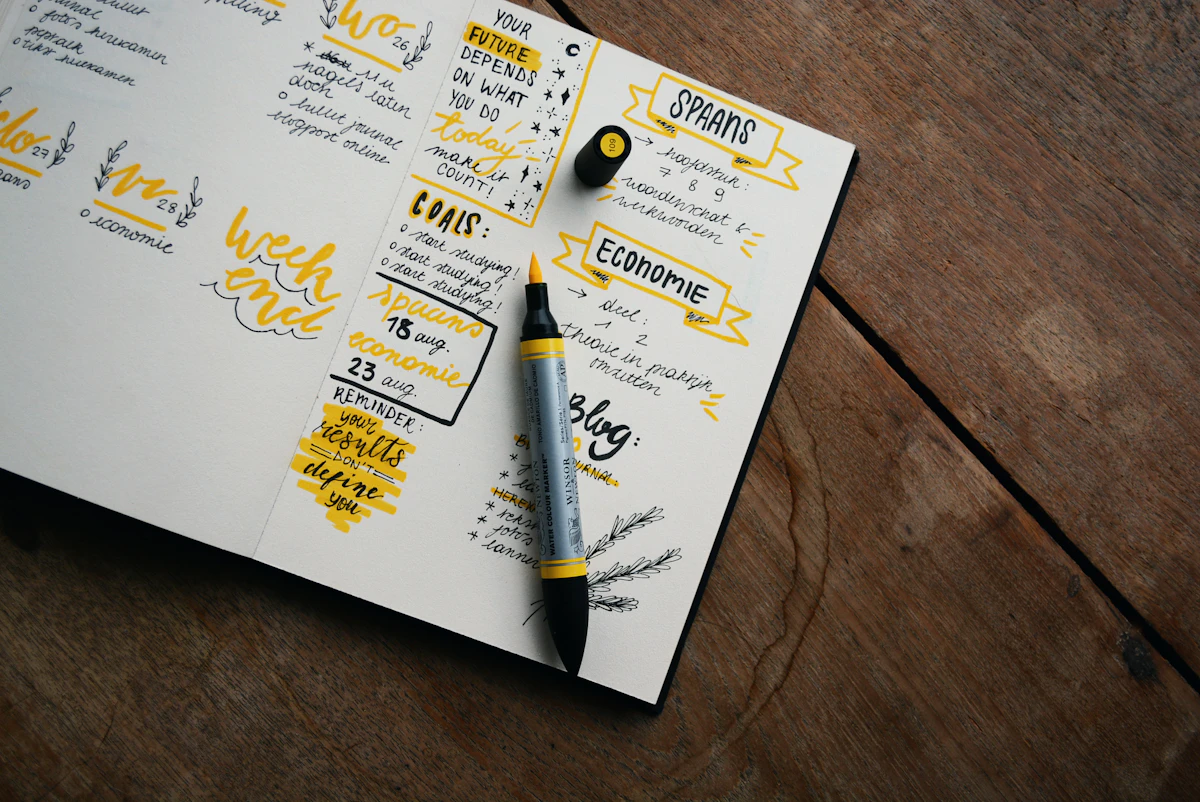 foto's herexamen
peptalk
o tekst herexamen
WO 26
* 11 u
nagels laten
doen
o bullet journal
blogpost online
do 27
vr 28
o economie
Week
end
YOUR
FUTURE
DEPENDS
ON WHAT
YOU DO
today
make it
COUNT!
GOALS:
o start studying!
o start studying!
o start studying!
spaans
18 aug.
economie
23 aug.
REMINDER:
your
results
DON'T
define
you
SPAANS
→ hoofdstuk:
7 8 9
woordenschat &
werkwoorden
ECONOMIE
→ deel:
1 2
theorie in praktijk
omzetten
Blog:
109
WATER COLOUR MARKER
WINSOR